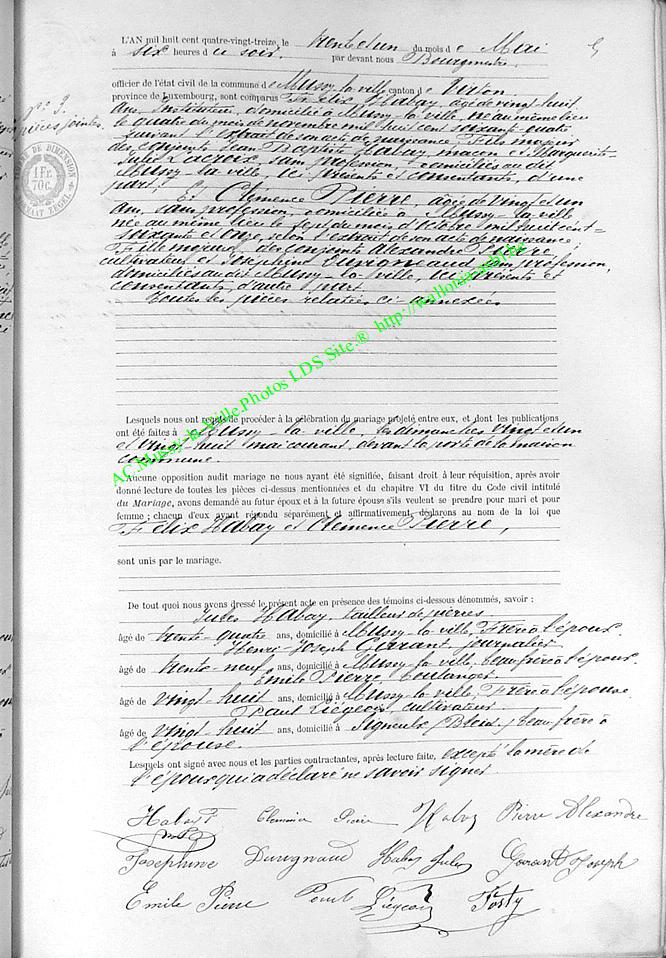 L'AN mil huit cent quatre-vingt-treize, le trente et un du mois de Mai
à six heures du soir, par devant nous Bourgmestre
officier de l'état civil de la commune de Mussy-la-ville canton de Virton
province de Luxembourg, sont comparus Félix Habay, âgé de vingt huit
ans, Instituteur, domicilié à Mussy-la-ville, né au même lieu
le quatre du mois de novembre mil huit cent soixante quatre
suivant l'extrait de son acte de naissance; Fils majeur
des conjoints Jean Baptiste Habay, maçon et Marguerite-
Julie Lacroix, sans profession, domiciliés au dit
Mussy-la-ville, ici présents et consentants, d'une
part;
Et Clémence Pierre, âgée de vingt et un
ans, sans profession, domiciliée à Mussy-la-ville
née au même lieu le sept du mois d'Octobre mil huit cent-
soixante et onze, selon l'extrait de son acte de naissance;
Fille mineure des conjoints Alexandre Pierre
cultivateur et Joséphine sans profession,
domiciliés au dit Mussy-la-ville, ici présents et
consentants, d'autre part
Toutes les pièces relatées ci-annexées
Lesquels nous ont requis de procéder à la célébration du mariage projeté entre eux, et dont les publications
ont été faites à Mussy-la-ville, les dimanches vingt et un
et vingt-huit mai courant, devant la porte de la maison
commune.
Aucune opposition audit mariage ne nous ayant été signifiée, faisant droit à leur réquisition, après avoir
donné lecture de toutes les pièces ci-dessus mentionnées et du chapitre VI du titre du Code civil intitulé
du Mariage, avons demandé au futur époux et à la future épouse s'ils veulent se prendre pour mari et pour
femme ; chacun d'eux ayant répondu séparément et affirmativement, déclarons au nom de la loi que
Félix Habay et Clémence Pierre,
sont unis par le mariage.
De tout quoi nous avons dressé le présent acte en présence des témoins ci-dessous dénommés, savoir :
Jules Habay, tailleur de pierres
âgé de trente-quatre ans, domicilié à Mussy-la-ville, Frère à l'époux.
Henri-Joseph Garant journalier
âgé de trente-neuf ans, domicilié à Mussy-la-ville, beau frère à l'époux.
Emile Pierre boulanger
âgé de vingt-huit ans, domicilié à Mussy-la-ville, Frère à l'épouse.
Paul Liégeois, cultivateur
âgé de vingt-huit ans, domicilié à Signeulx (Bleid) beau frère à
l'épouse.
Lesquels ont signé avec nous et les parties contractantes, après lecture faite, excepté la mère de
l'époux qui a déclaré ne savoir signer.
Habay F Clémence Pierre Habay Pierre Alexandre
Joséphine Habay Jules Garant Joseph
Emile Pierre Paul Liégeois Fosty
n° 9.
pièces jointes.
1 Fr.
70 c.
AC.Mussy-la-Ville.Photos LDS Site.® http://wallonia-asbl.be